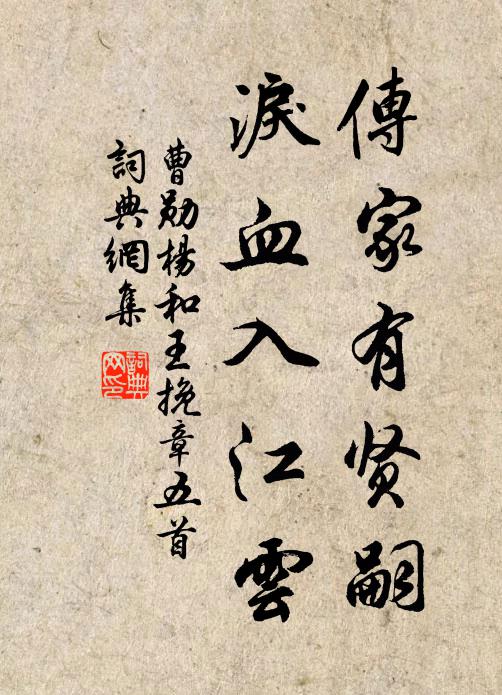 傳家有贤嗣
淚血入江雲
曹勋楊和王挽章五首
詞典網集
詞典网印